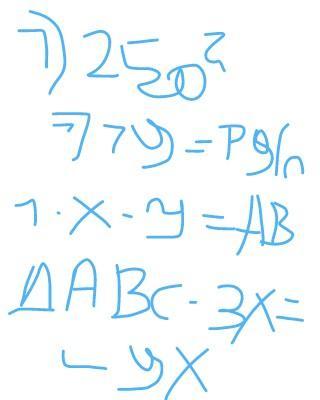 7) 250²
77y = Pg/n
1 · x - y = AB
△ABC - 3x =
- yx